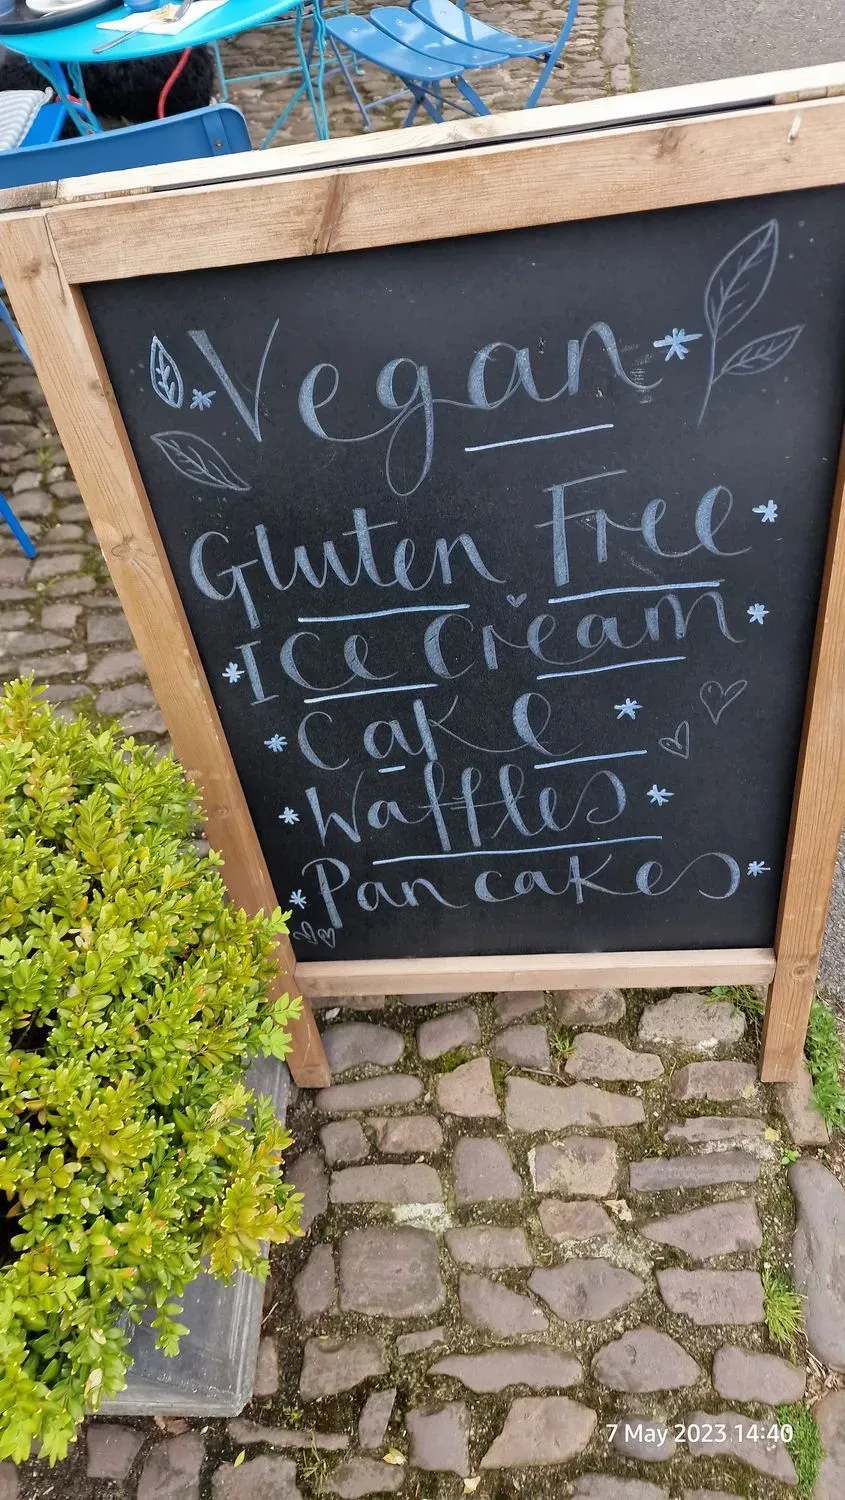 Vegan
Gluten Free
Ice Cream
Cake
Waffles
Pancakes
7 May 2023 14:40